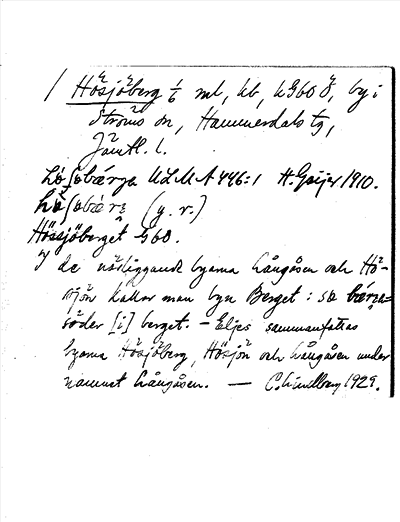 Hösjöberg 1/6 ml, kb, kG60 8, by i
Ströms sn, Hammerdals tg,
Jämtl. l.
ULMA 446:1 H. Geijer 1910.
(y. r.)
Hössjöberget G60.
I de närliggande byarna Långåsen och Hö-
sjön kallar man byn Berget: sø
söder [i] berget. – Eljes sammanfattas
byarna Hösjöberg, Hösjön och Långåsen under
namnet Långåsen. — C. Lindberg 1929.